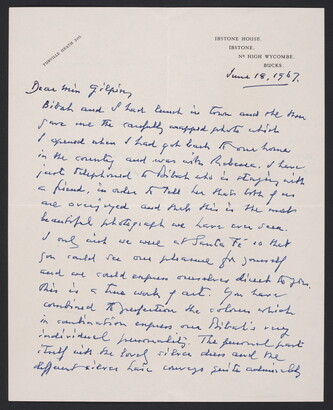 TURVILLE HEATH 310.
IBSTONE HOUSE.
IBSTONE.
Nr HIGH WYCOMBE,
BUCKS.
June 18, 1967.
Dear Miss Gilpin,
and I had lunch in town and she then
gave me the carefully wrapped photo which
I opened when I had got back to our home
in the country and was with Rebecca. I have
just telephoned to who is staying with
a friend, in order to tell her that both of us
are overjoyed and that this is the most
beautiful photograph we have ever seen.
I only wish we were at Santa Fé so that
you could see our pleasure for yourself
and we could express ourselves direct to you.
This is a true work of art. You have
combined to perfection the colours which
in combination express our very
individual personality. The personal part
itself with the lovely silver dress and the
different silver hair conveys quite admirably